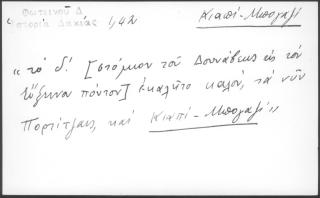 Φωτεινοῦ Δ
Ἱστορία Δακίας 1,42
Κιαπί-Μπογαζί
"τὸ δ! [στόμιον τοῦ Δουνάβεως εἰς τὸν
Εὔξεινον πόντον] ἐκαλεῖτο καλόν, τὰ νῦν
Πορτίτζας, καὶ Κιαπί-Μπογαζί"